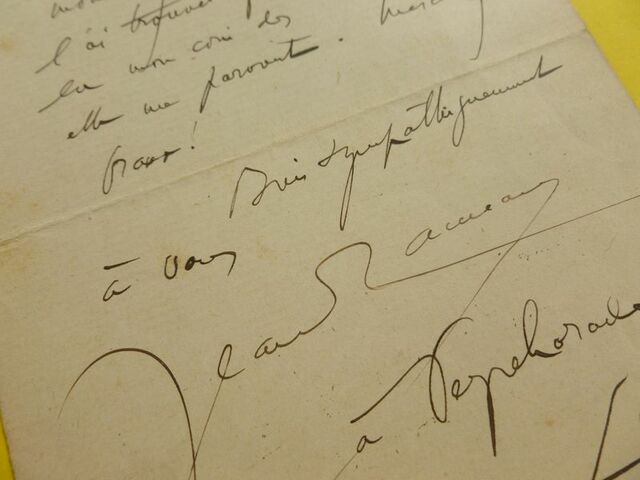 l'ai trouvé
en mon coin des
elle me paravent. Merci
bravo!
Bien sympathiquement
à vous
Jean Rameau
à Peyrehorade